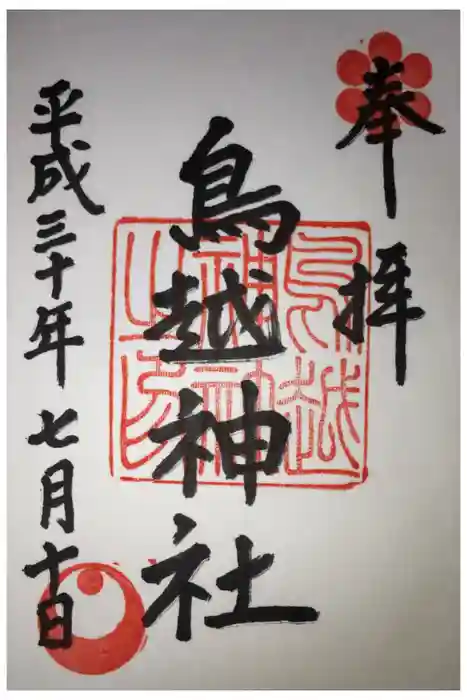 奉拝
鳥越神社
鳥越神社之印
平成三十年七月十日